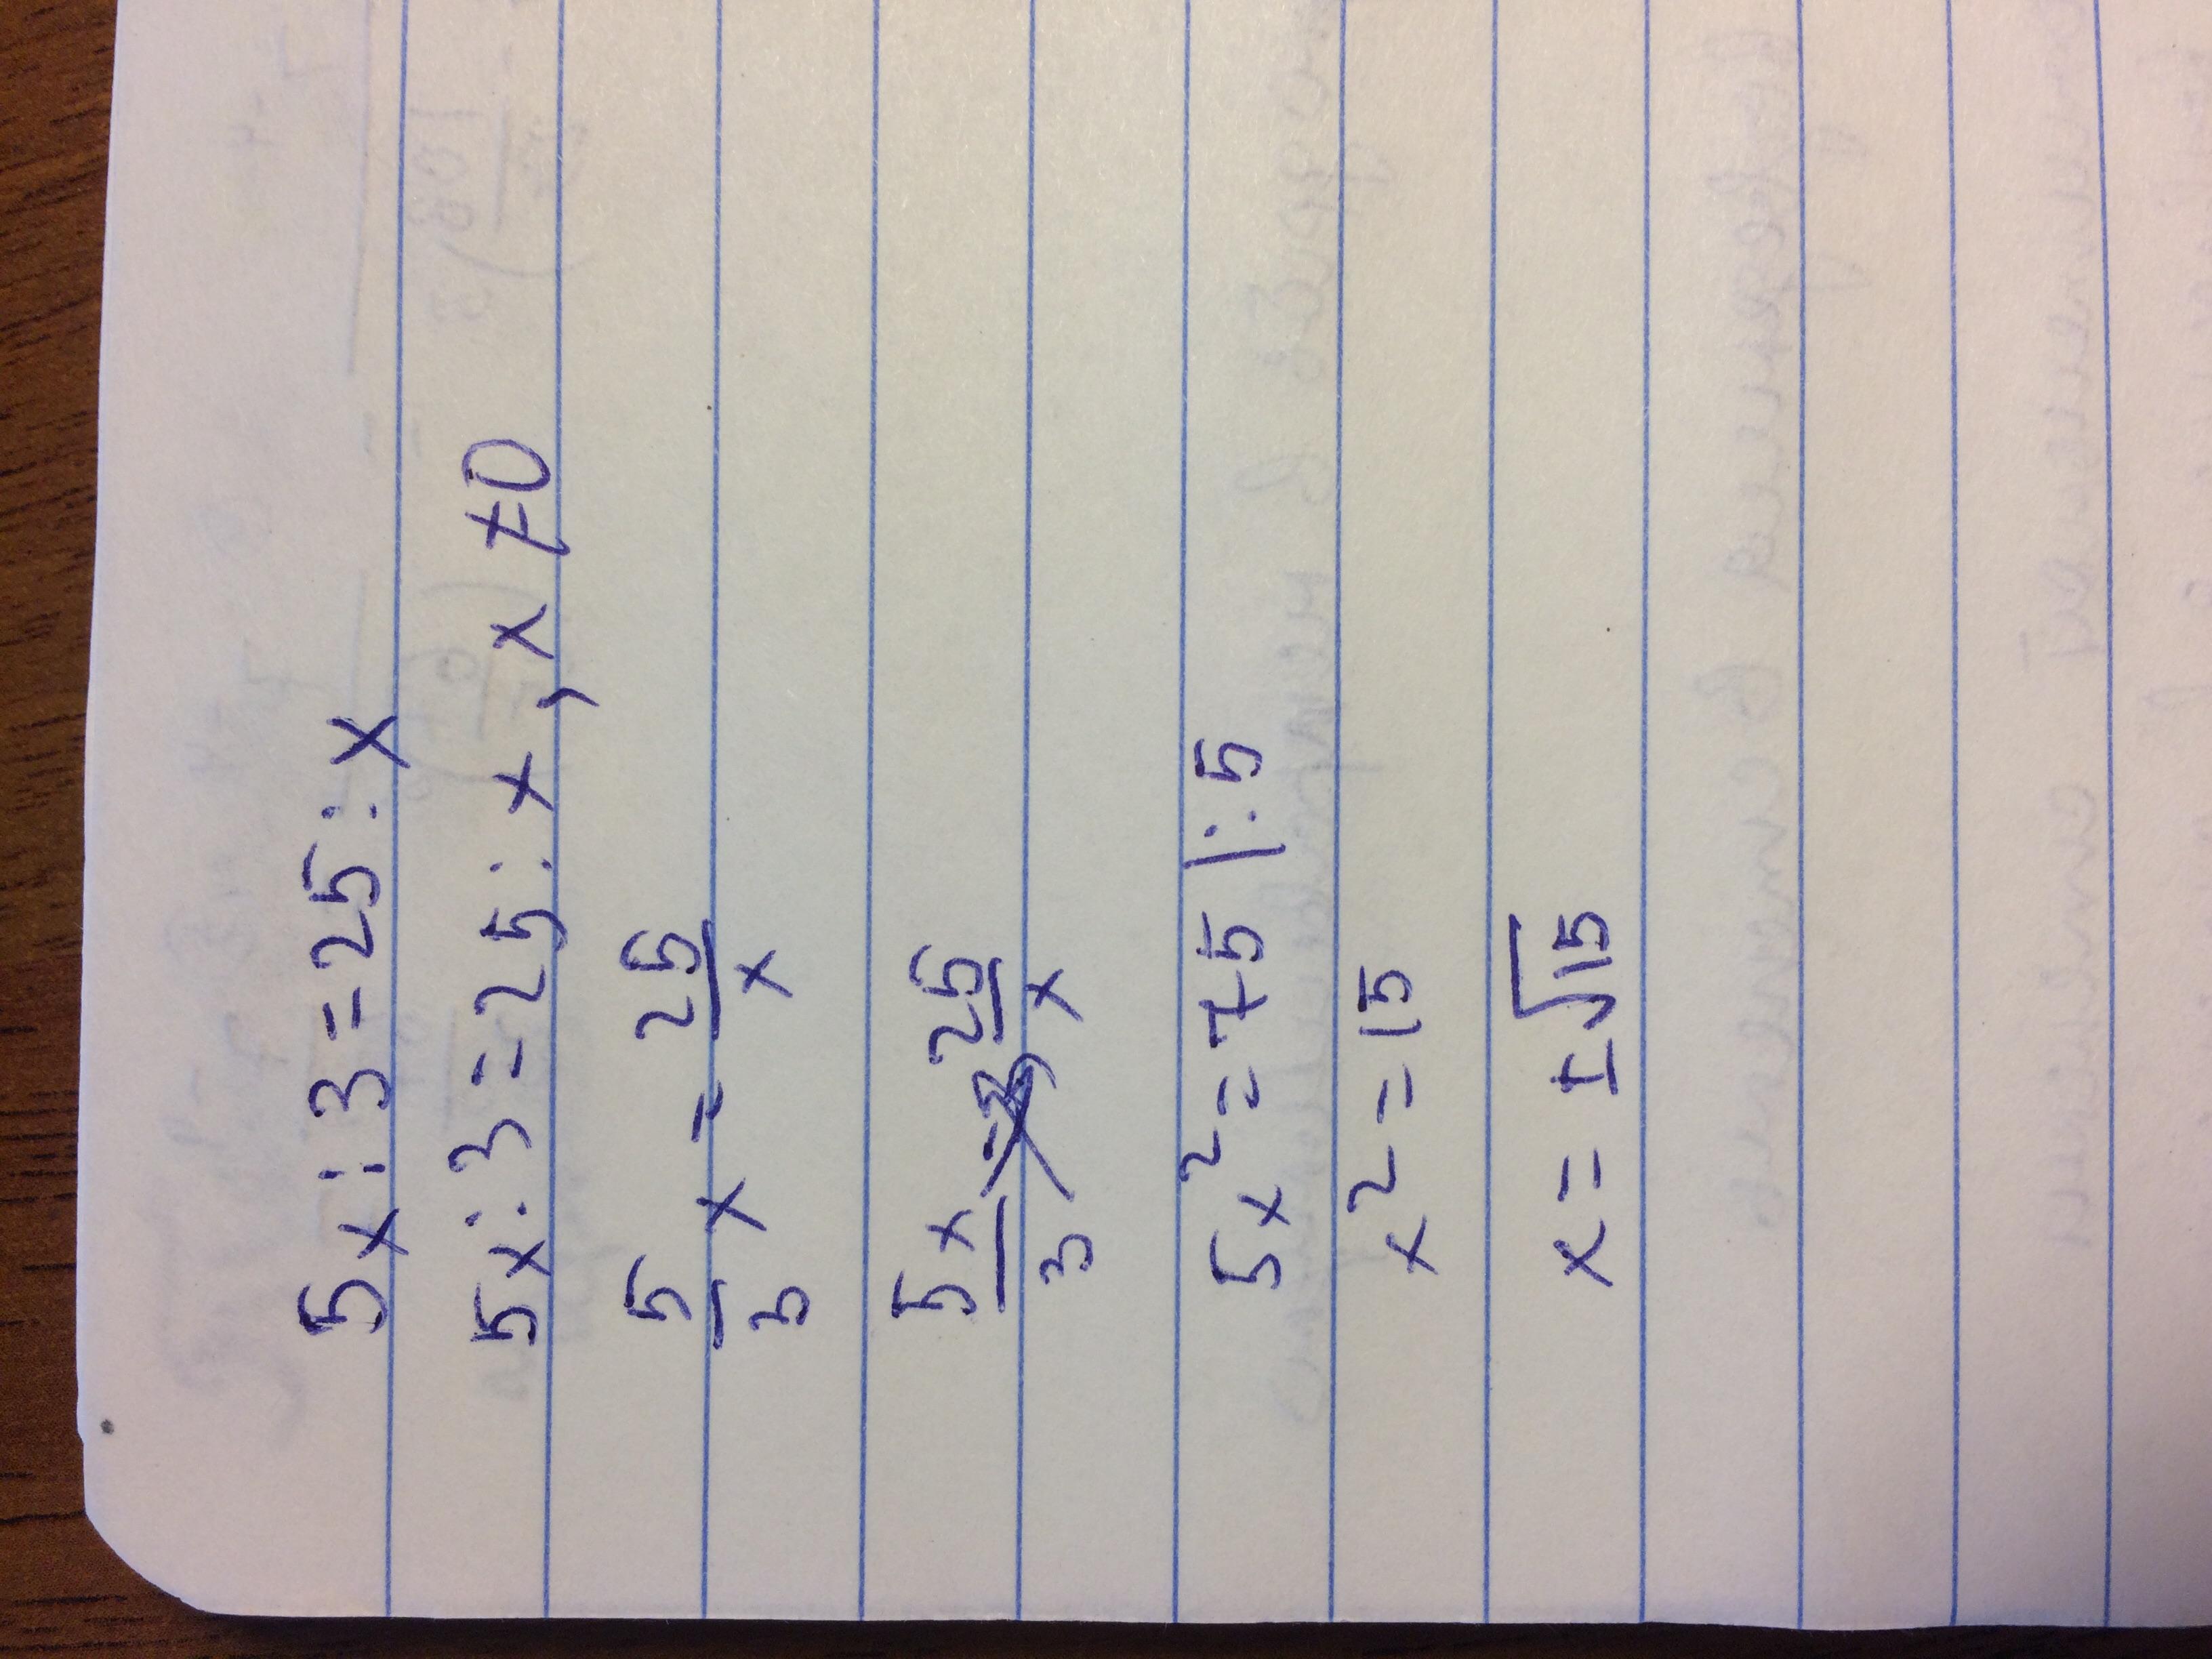 5x:3=25:x
5x:3=25:x, x≠0
5/3 x = 25/x
5x/3 25/x
5x²=75 |:5
x²=15
x=±√15